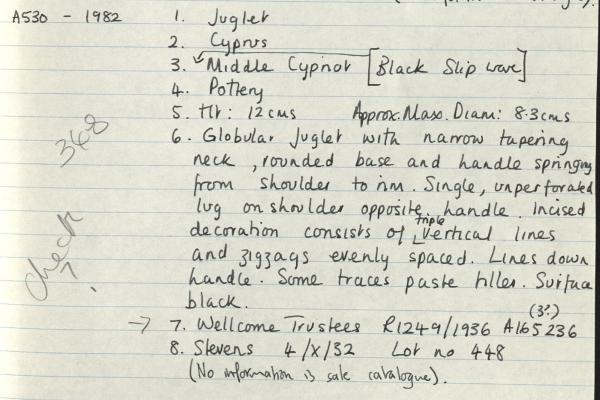 A530 - 1982 1. Juglet
2. Cyprus
3. Middle Cypriot [Black Slip ware]
4. Pottery
5. Ht: 12 cms Approx. Max. Diam: 8.3 cms
6. Globular juglet with narrow tapering
neck, rounded base and handle springing
from shoulder to rim. Single, unperforated
lug on shoulder opposite handle. Incised
decoration consists of triple vertical lines
and zigzags evenly spaced. Lines down
handle. Some traces paste filler. Surface
black.
(3?)
→ 7. Wellcome Trustees R1249/1936 A165236
8. Stevens 4/X/32 Lot no 448
(No information is sale catalogue).
348
check
?